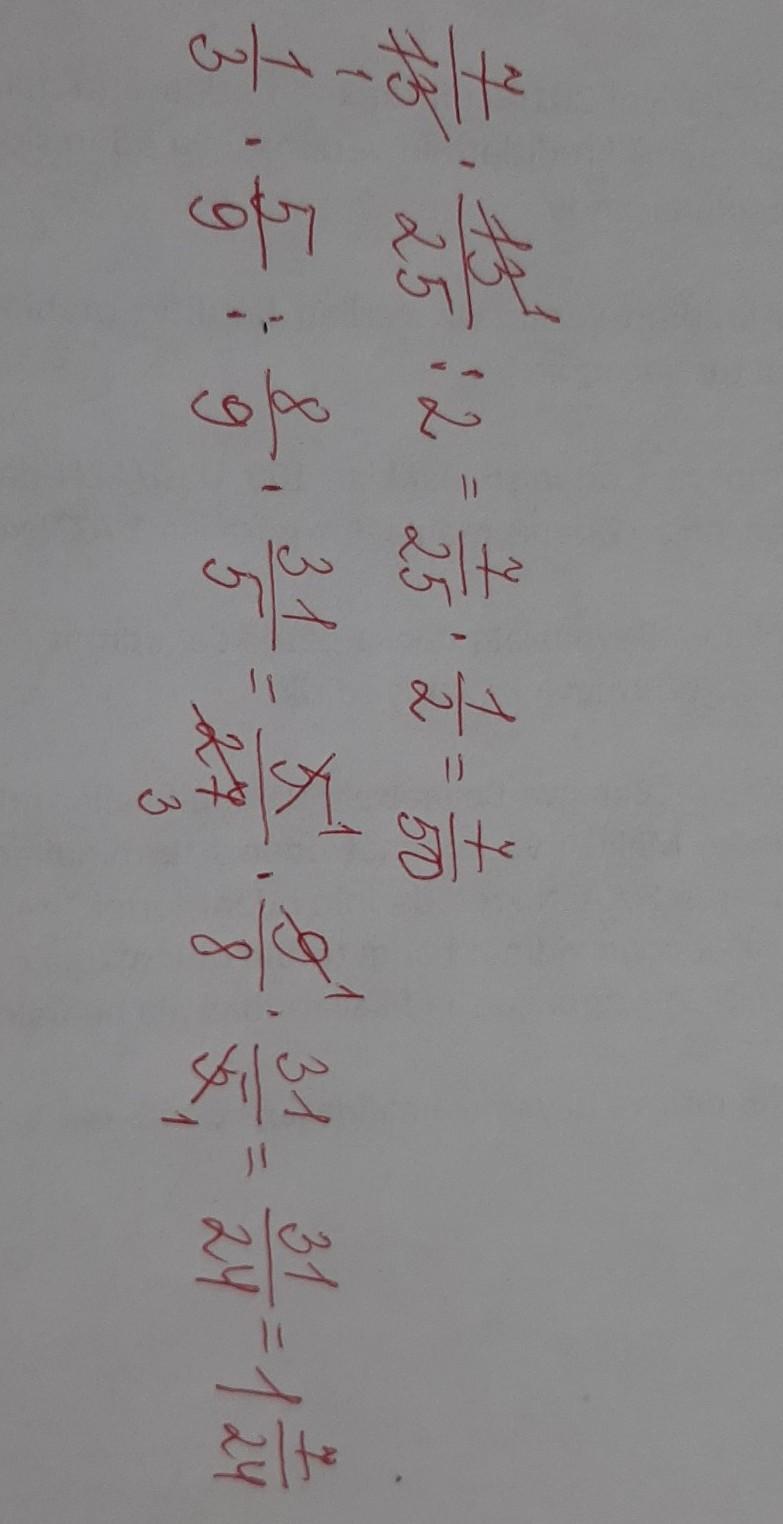 7/13 · 13/25 : 2 = 7/25 · 1/2 = 7/50
1/3 · 5/9 : 8/9 · 31/5 = 5/27 · 9/8 · 31/5 = 31/24 = 1 7/24